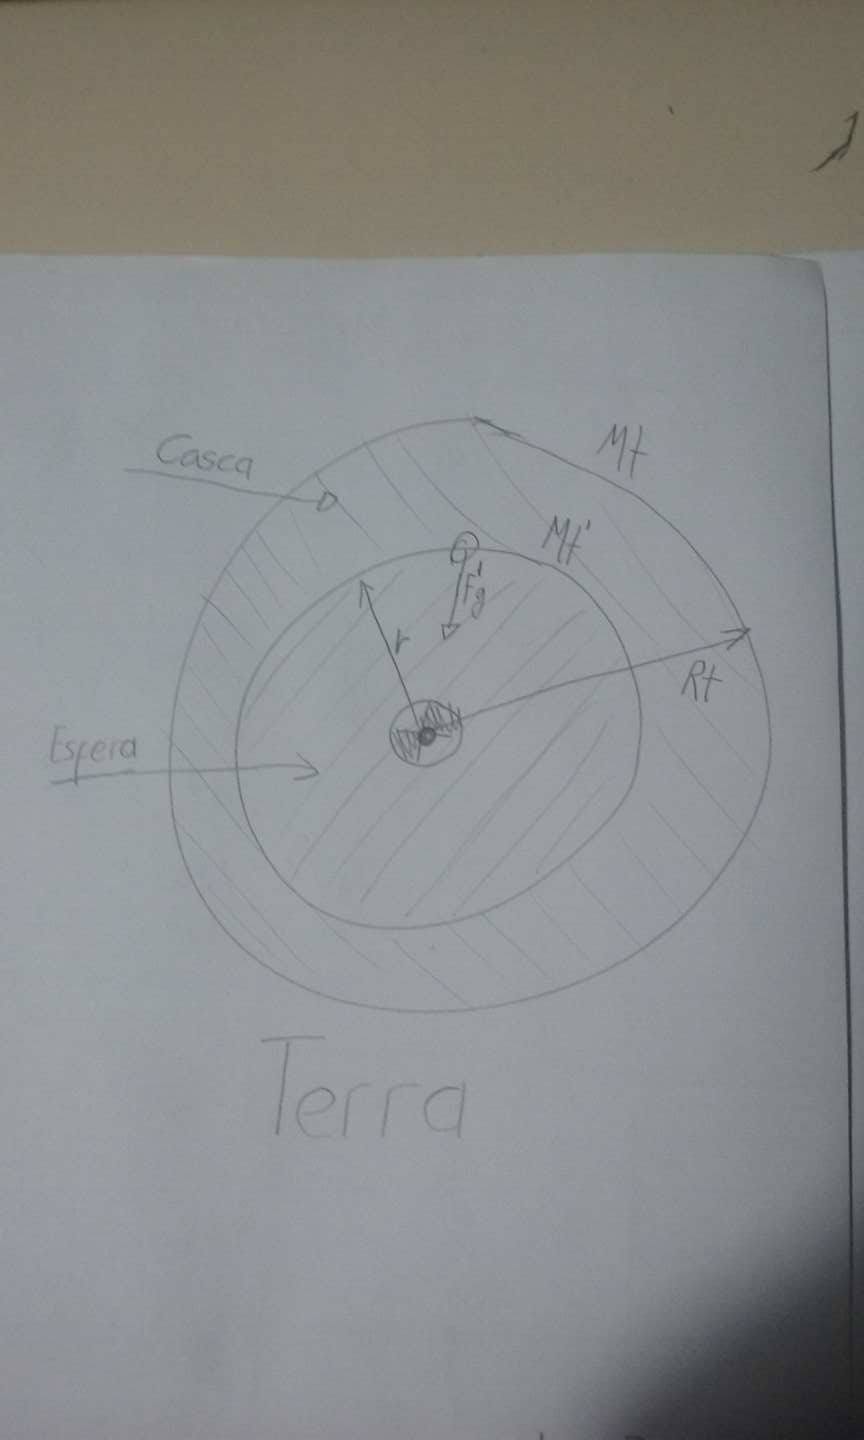 Mt
Casca
Mt'
F'g
r
Rt
Esfera
Terra